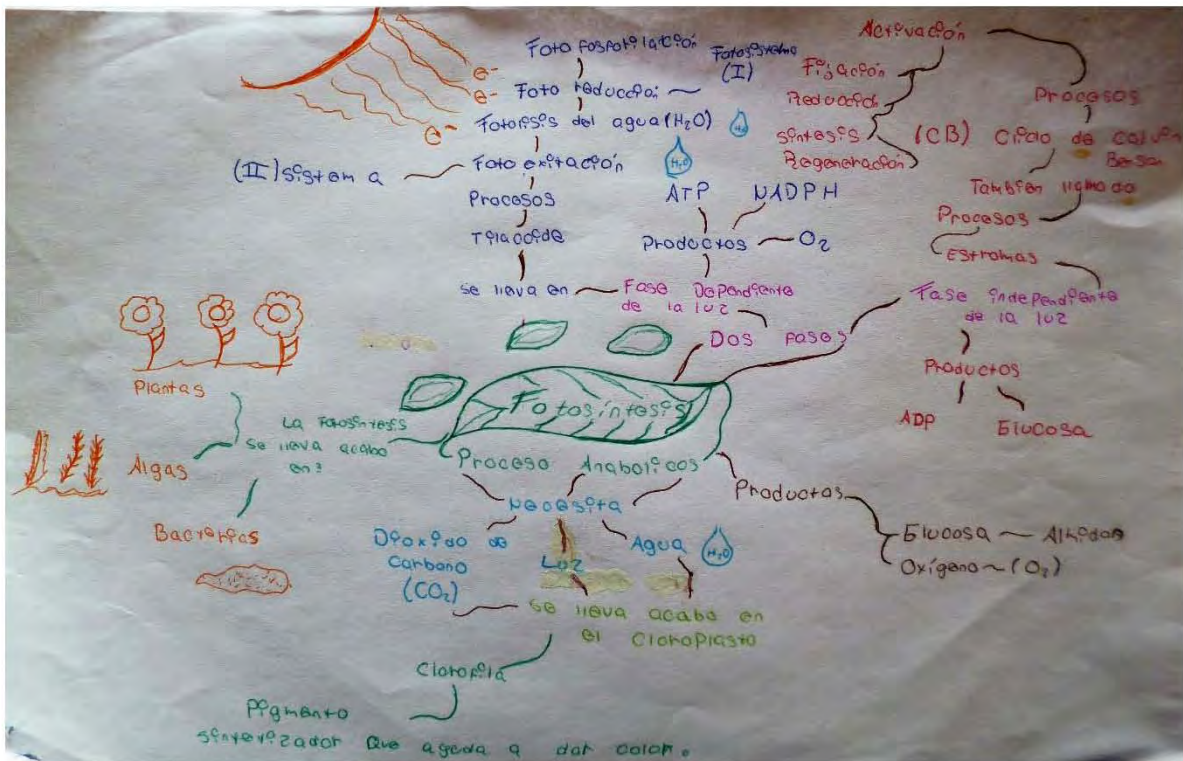 Foto fosforilación
Fotosistema
(I)
e-
Foto reducción
e-
Fotolisis del agua (H₂O)
H₂O
e-
Foto exitación
(II) sistema
H₂O
Procesos
Tilacoide
se lleva en
ATP
NADPH
Productos
O₂
Fase Dependiente
de la luz
Dos fases
Activación
Fijación
Reducción
sintesis
Regeneración
Procesos
(CB) Ciclo de Calvin
Benson
Tambien llamado
Procesos
Estromas
Fase independiente
de la luz
Productos
ADP
Glucosa
Plantas
Algas
Bacterias
La Fotosintesis
se lleva acabo
en:
Fotosíntesis
Proceso Anabolicos
Necesita
Dioxido de
Carbono
(CO₂)
Luz
Agua
H₂O
Productos
Glucosa
Almidon
Oxígeno
(O₂)
se lleva acabo en
el Cloroplasto
Clorofila
Pigmento
sintetizador que ayuda a dar color.